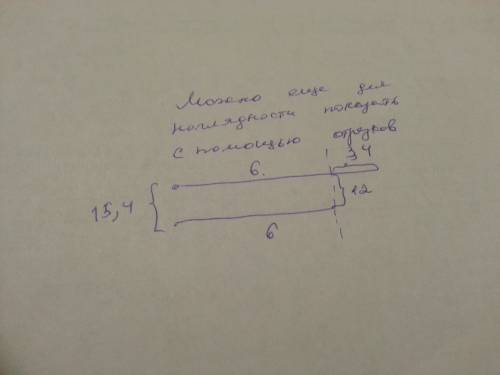 Можно еще для
наглядности показать
с помощью отрезков
3,4
6.
15,4
12
6